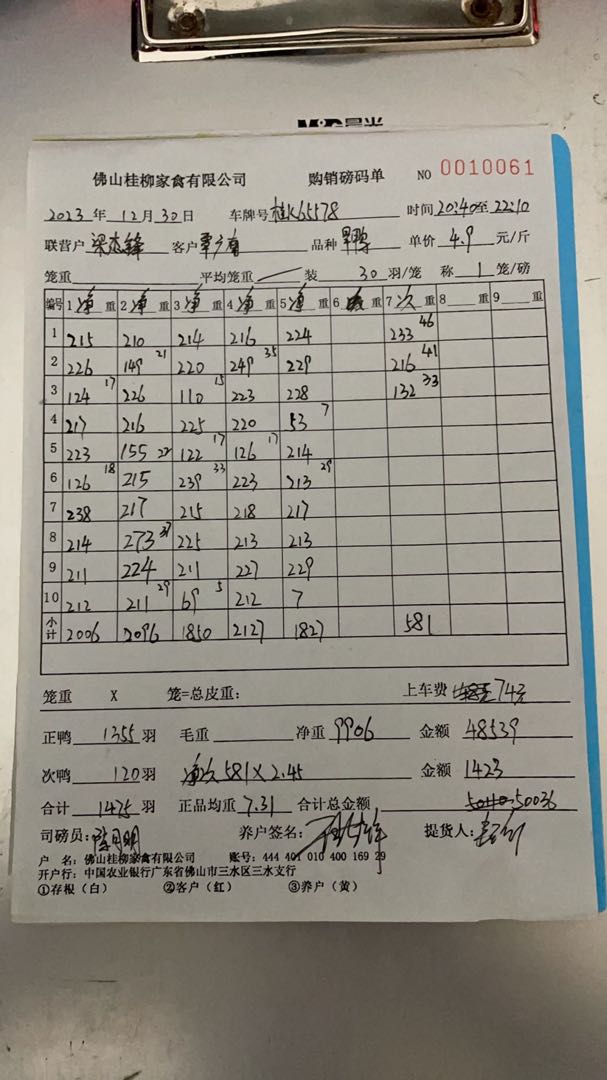 M&G晨光
佛山桂柳家禽有限公司 购销磅码单 NO 0010061
2023年12月30日 车牌号 桂K65578 时间20:40至22:10
联营户 客户 品种 单价 4.9 元/斤
笼重 平均笼重 装 30 羽/笼 称 1 笼/磅
编号 1净重 2净重 3净重 4净重 5净重 6 重 7次重 8 重 9 重
1 215 210 214 216 224 233 46
2 226 149 21 220 249 35 229 216 41
3 124 17 226 110 15 223 228 132 33
4 217 216 225 220 53 7
5 223 155 22 122 17 126 17 214
6 126 18 215 239 33 223 213 29
7 238 217 215 218 217
8 214 273 37 225 213 213
9 211 224 211 227 229
10 212 211 29 69 5 212 7
小计 2006 2096 1850 2127 1827 581
笼重 X 笼=总皮重： 上车费 74元
正鸭 1355 羽 毛重 净重 9906 金额 48539
次鸭 120 羽 净次 581 X 2.45 金额 1423
合计 1475 羽 正品均重 7.31 合计总金额 50036
司磅员： 养户签名： 提货人：
户 名：佛山桂柳家禽有限公司 账号：444 401 010 400 169 29
开户行：中国农业银行广东省佛山市三水区三水支行
①存根（白） ②客户（红） ③养户（黄）